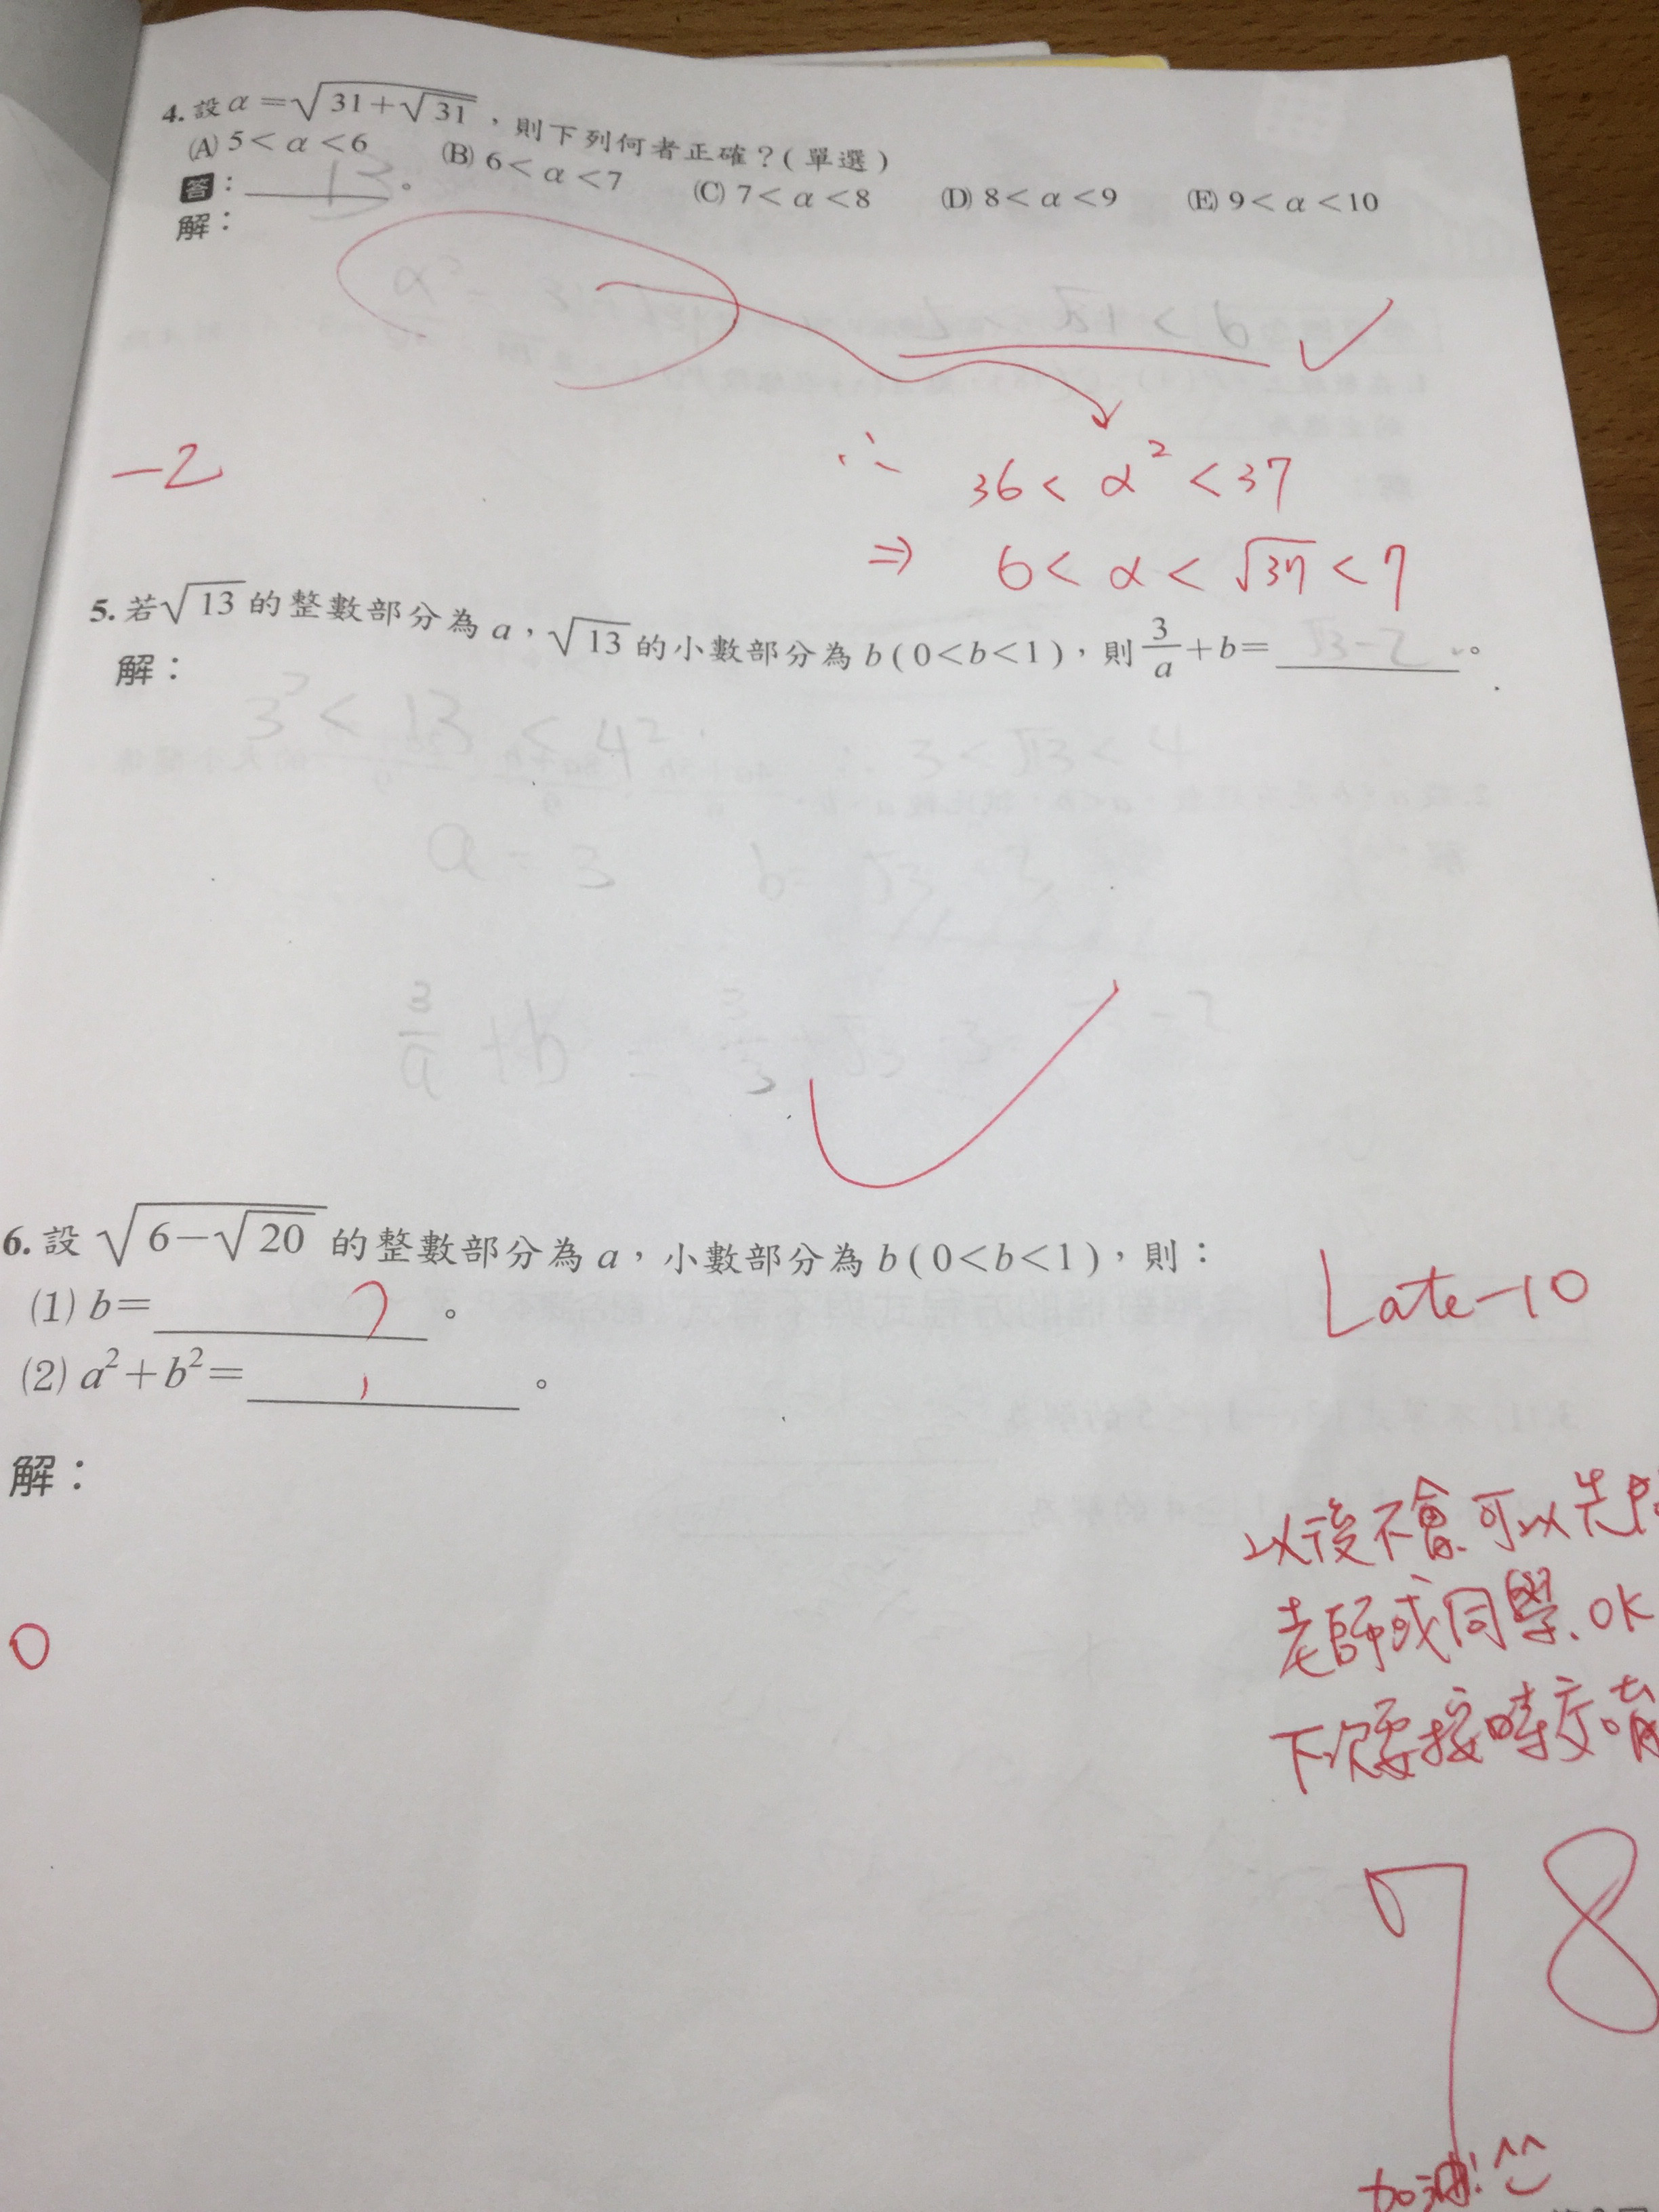 4. 設 α = √(31+√31) ，則下列何者正確？( 單選 )
(A) 5 < α < 6 (B) 6 < α < 7 (C) 7 < α < 8 (D) 8 < α < 9 (E) 9 < α < 10
答： 。
解：
α² = 31 √31 < 6
-2
∴ 36 < α² < 37
⇒ 6 < α < √37 < 7
5. 若 √13 的整數部分為 a，√13 的小數部分為 b ( 0 < b < 1 )，則 3/a + b = √13-2 。
解：
3² < 13 < 4² ∴ 3 < √13 < 4
a = 3 b = √13 - 3
3/a + b = 3/3 + √13 - 3 = - 2
6. 設 √(6-√20) 的整數部分為 a，小數部分為 b ( 0 < b < 1 )，則：
(1) b = ? 。
Late-10
(2) a² + b² = 。
解：
以後不會可以先
0
老師或同學、OK
下次要按時交
78
加油! ^^